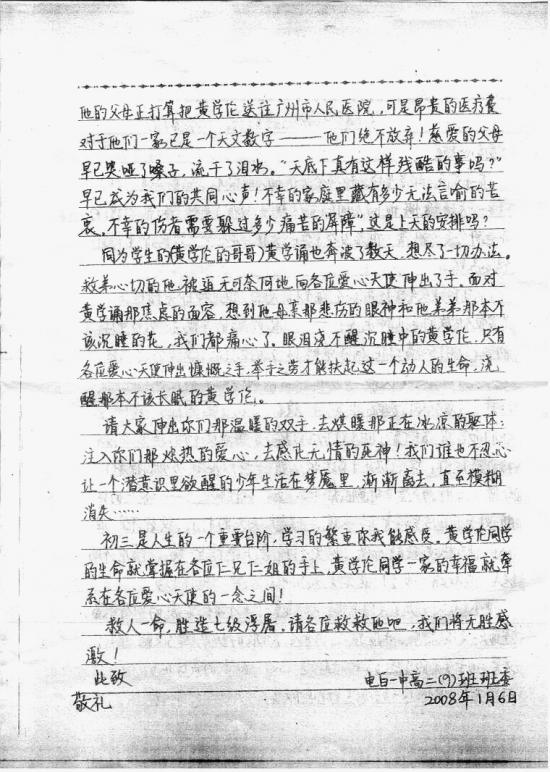 他的父母正打算把黄学伦送往广州市人民医院,可是昂贵的医疗费
对于他们一家已是一个天文数字———他们绝不放弃!慈爱的父母
早已哭哑了嗓子,流干了泪水。"天底下真有这样残酷的事吗?"
早已成为我们的共同心声!不幸的家庭里藏有多少无法言喻的苦
衷,不幸的伤者需要躲过多少痛苦的屏障",这是上天的安排吗?
同为学生的(黄学伦的哥哥)黄学诵也奔波了数天,想尽了一切办法。
救弟心切的他被逼无可奈何地向各位爱心天使伸出了手。面对
黄学诵那焦虑的面容,想到他母亲那悲伤的眼神和他弟弟那本不
该沉睡的花,我们都痛心了。眼泪浇不醒沉睡中的黄学伦,只有
各位爱心天使伸出慷慨之手,举手之劳才能扶起这一个动人的生命,浇
醒那本不该长眠的黄学伦。
请大家伸出你们那温暖的双手,去烘暖那正在冰凉的躯体;
注入你们那炽热的爱心,去感化无情的死神!我们谁也不忍心
让一个潜意识里欲醒的少年生活在梦魇里,渐渐离去,直至模糊
消失……
初三是人生的一个重要台阶,学习的繁重你我能感受。黄学伦同学
的生命就掌握在各位仁兄仁姐的手上,黄学伦同学一家的幸福就牵
系在各位爱心天使的一念之间!
救人一命,胜造七级浮屠。请各位救救他吧,我们将无胜感
激!
此致 电白一中高二(9)班班委
敬礼 2008年1月6日